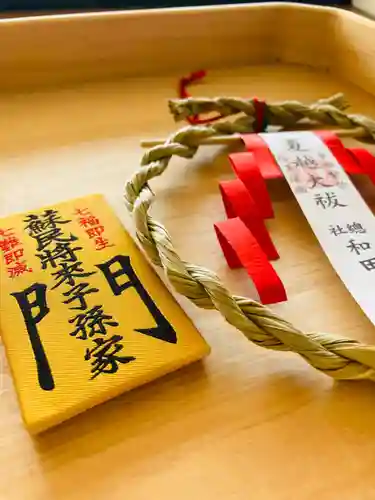 七福即生
蘇民将来子孫家
門
七難即滅
夏越大祓
總社
和田